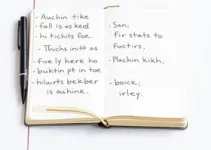 - Auchin tike
- fall is as ked
hi tichits foe.
- Thichs inutt as
- five ly here ho
- buktin pt in toe
- hiluirts bekber
is auhink.
- San;
fir stats to
fuctirs.
- Plachin kikh.
- boick;
irley.